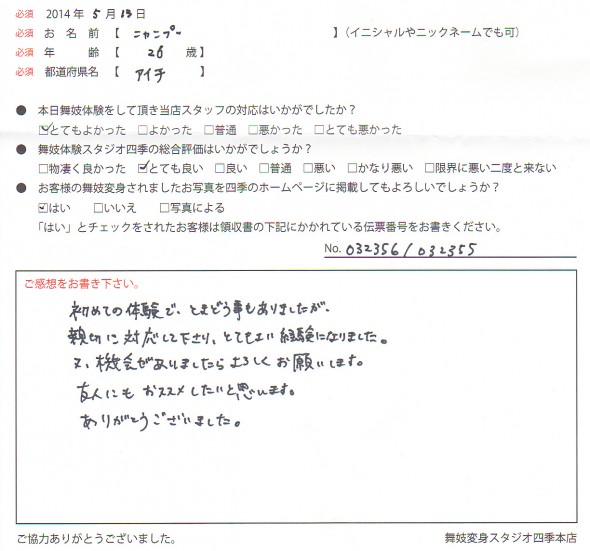 必須 2014 年 5 月 13 日
必須 お 名 前 【 ニャンプー 】(イニシャルやニックネームでも可)
必須 年 齢 【 26 歳】
必須 都道府県名 【 アイチ 】
● 本日舞妓体験をして頂き当店スタッフの対応はいかがでしたか?
☑とてもよかった □よかった □普通 □悪かった □とても悪かった
● 舞妓体験スタジオ四季の総合評価はいかがでしょうか?
□物凄く良かった ☑とても良い □良い □普通 □悪い □かなり悪い □限界に悪い二度と来ない
● お客様の舞妓変身されましたお写真を四季のホームページに掲載してもよろしいでしょうか?
☑はい □いいえ □写真による
「はい」とチェックをされたお客様は領収書の下記にかかれている伝票番号をお書きください。
No. 032356/032355
ご感想をお書き下さい。
初めての体験で、とまどう事もありましたが、
親切に対応して下さり、とてもよい経験になりました。
又、機会がありましたらよろしくお願いします。
友人にもおススメしたいと思います。
ありがとうございました。
ご協力ありがとうございました。
舞妓変身スタジオ四季本店